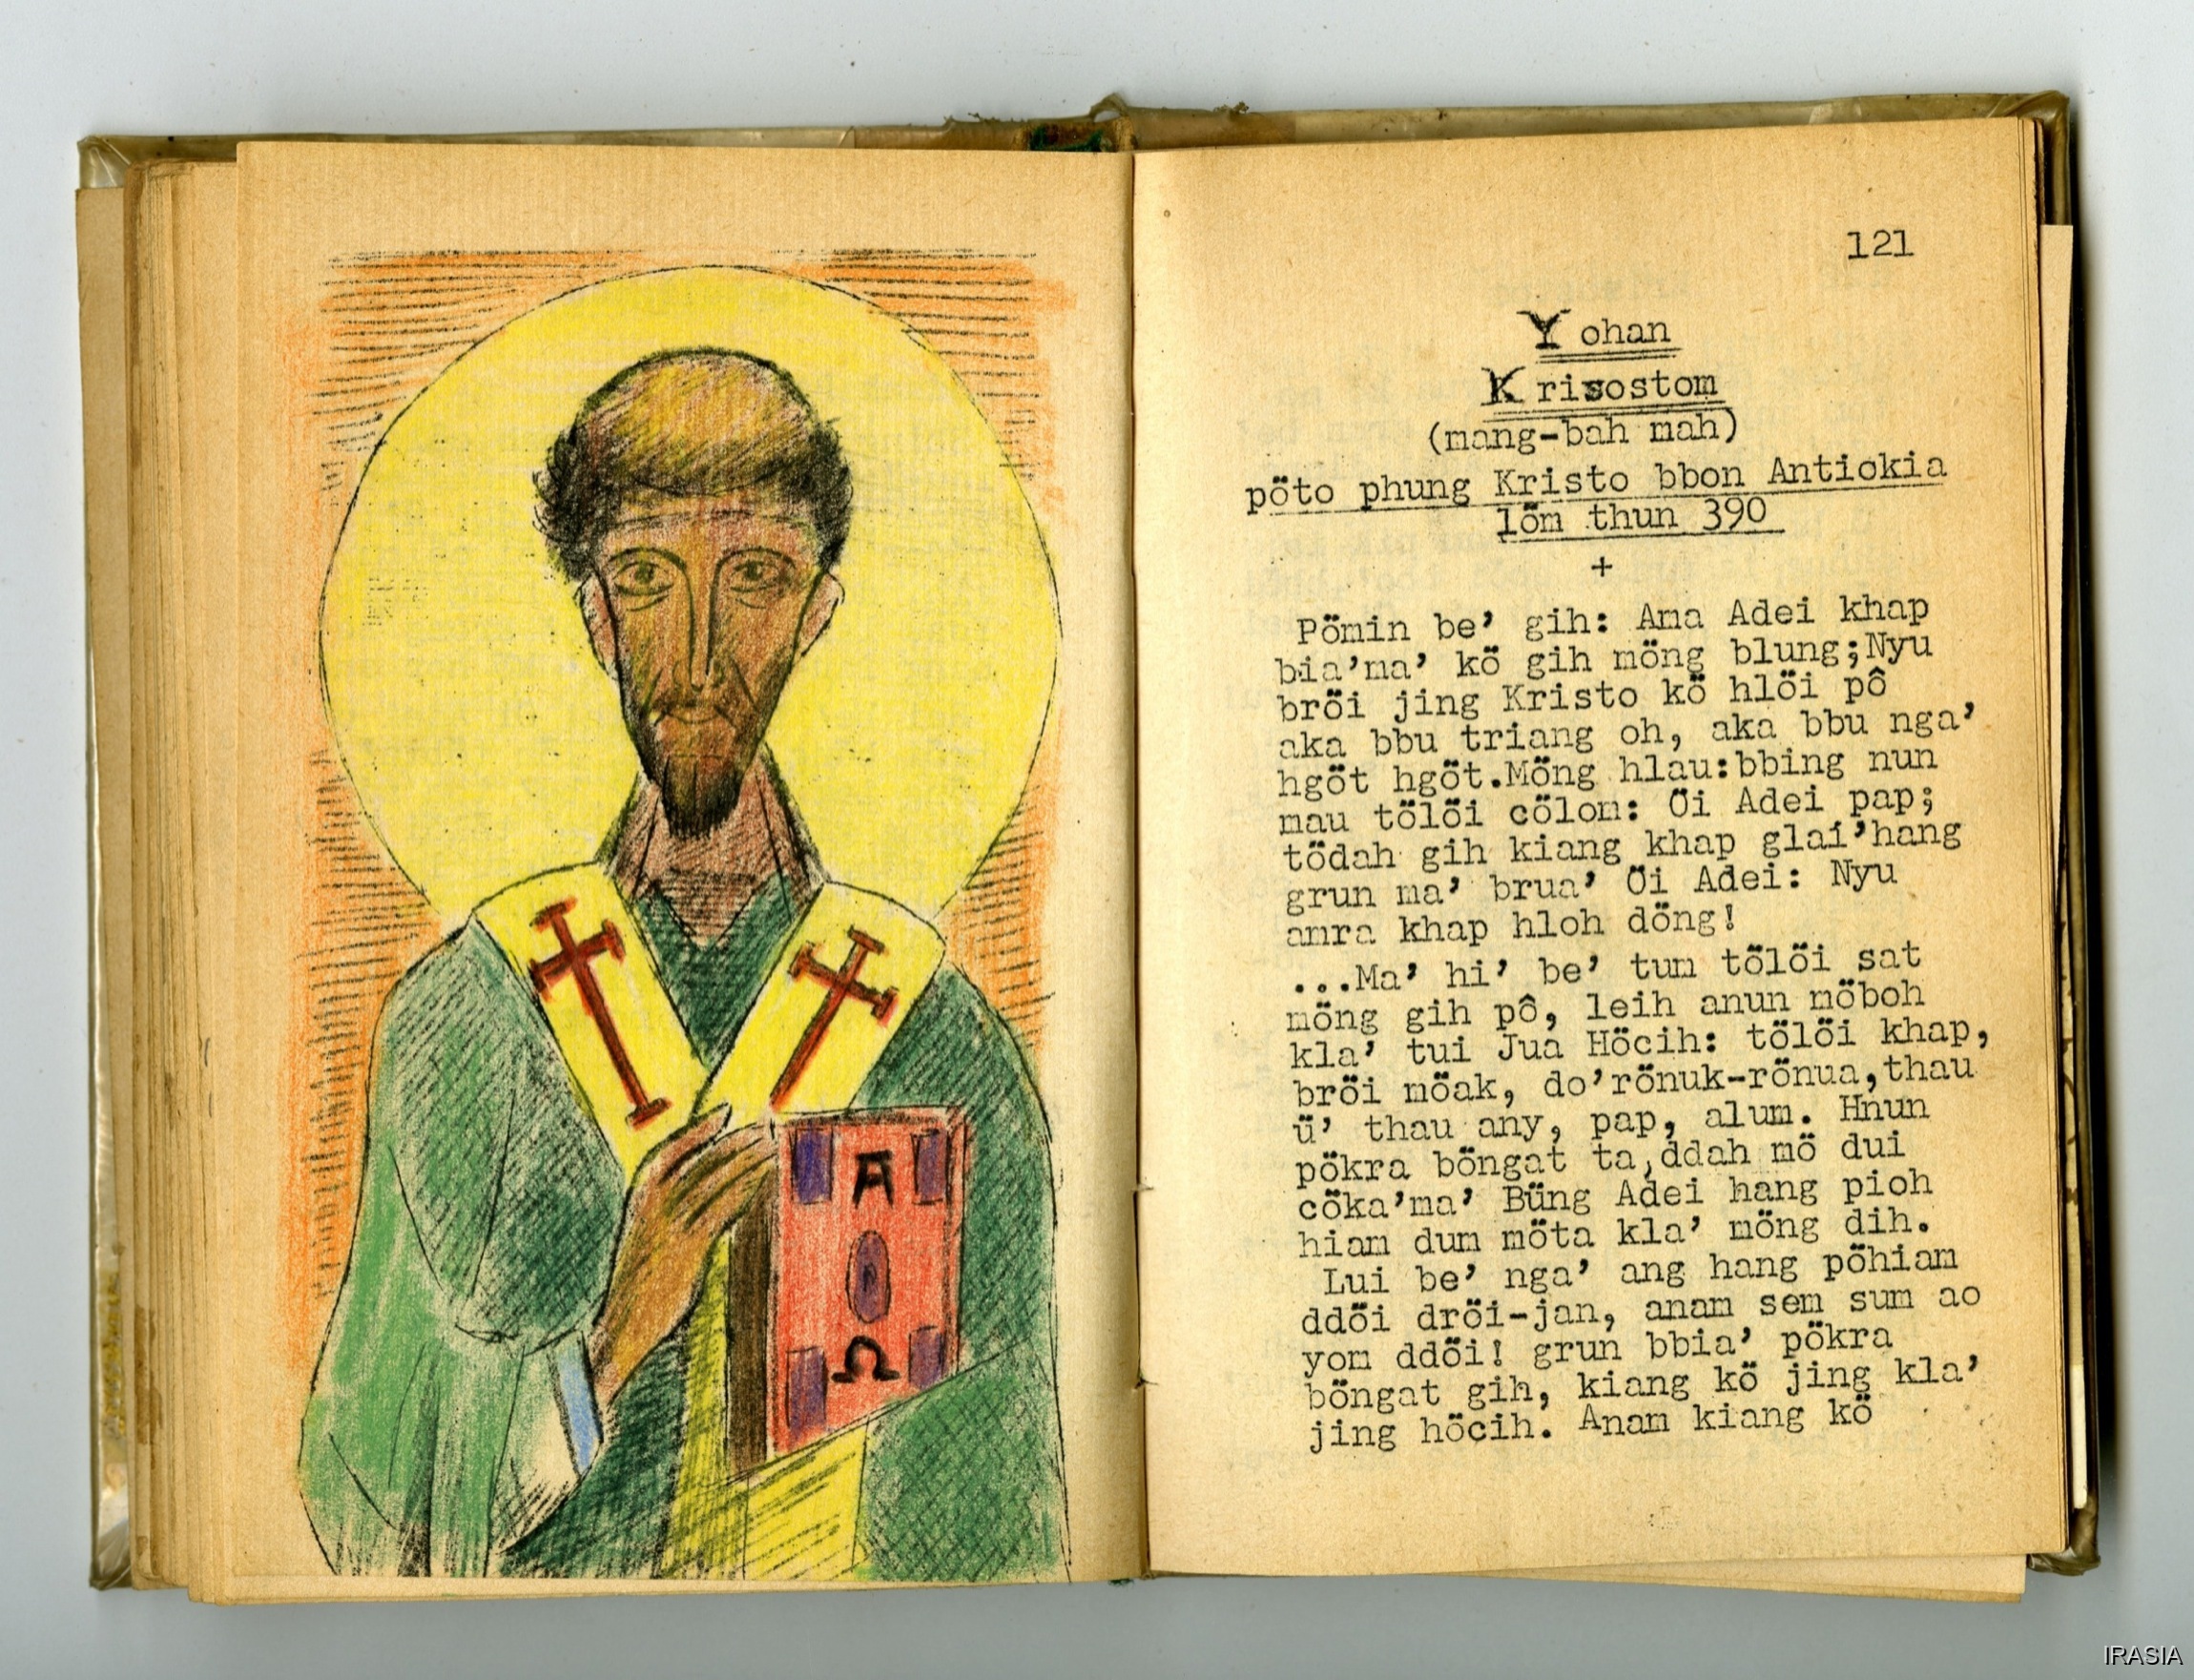 Α
Ω
121
Yohan
Krisostom
(mang-bah mah)
pöto phung Kristo bbon Antiokia
löm thun 390
+
Pömin be' gih: Ama Adei khap
bia'ma' kö gih möng blung;Nyu
bröi jing Kristo kö hlöi pô
aka bbu triang oh, aka bbu nga'
hgöt hgöt.Möng hlau:bbing nun
mau tölöi cölom: Öi Adei pap;
tödah gih kiang khap glai'hang
grun ma' brua' Öi Adei: Nyu
amra khap hloh döng!
...Ma' hi' be' tum tölöi sat
möng gih pô, leih anun möboh
kla' tui Jua Höcih: tölöi khap,
bröi möak, do'rönuk-rönua,thau
ü' thau any, pap, alum. Hnun
pökra böngat ta,ddah mö dui
cöka'ma' Büng Adei hang pioh
hiam dum möta kla' möng dih.
Lui be' nga' ang hang pöhiam
ddöi dröi-jan, anam sem sum ao
yom ddöi! grun bbia' pökra
böngat gih, kiang kö jing kla'
jing höcih. Anam kiang kö
IRASIA